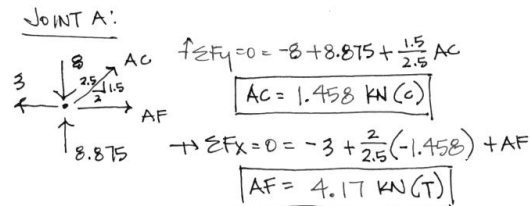 JOINT A:
8
AC
3
2.5
1.5
2
AF
8.875
↑ΣFy=0 = -8 +8.875 + 1.5/2.5 AC
AC = 1.458 KN (C)
→ ΣFx=0 = -3 + 2/2.5 (-1.458) + AF
AF = 4.17 KN (T)